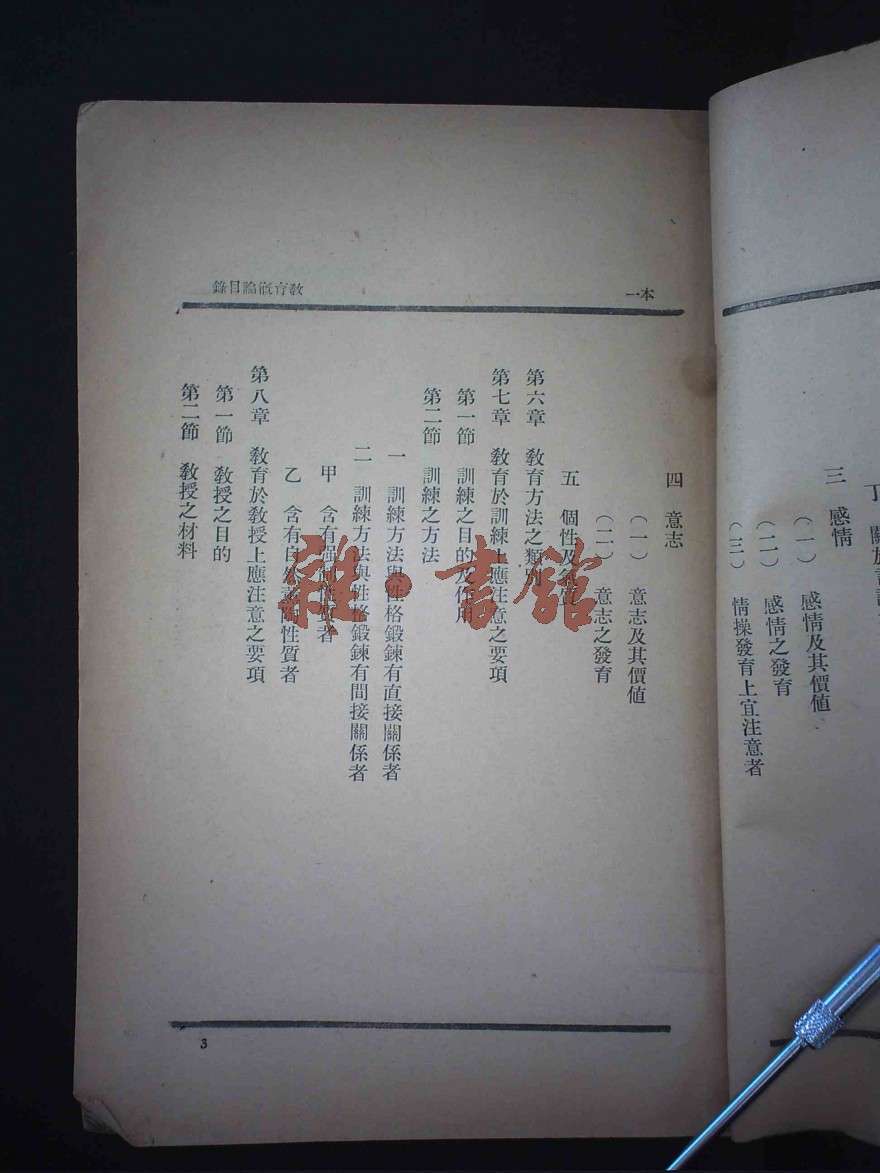 三　感情
（一）　感情及其價值
（二）　感情之發育
（三）　情操發育上宜注意者
本一
教育概論目錄
四　意志
（一）　意志及其價值
（二）　意志之發育
五　個性及氣質
第六章　教育方法之類別
第七章　教育於訓練上應注意之要項
第一節　訓練之目的及作用
第二節　訓練之方法
一　訓練方法與性格鍛鍊有直接關係者
二　訓練方法與性格鍛鍊有間接關係者
甲　含有强制性質者
乙　含有自然 性質者
第八章　教育於教授上應注意之要項
第一節　教授之目的
第二節　教授之材料
3
雜·書館